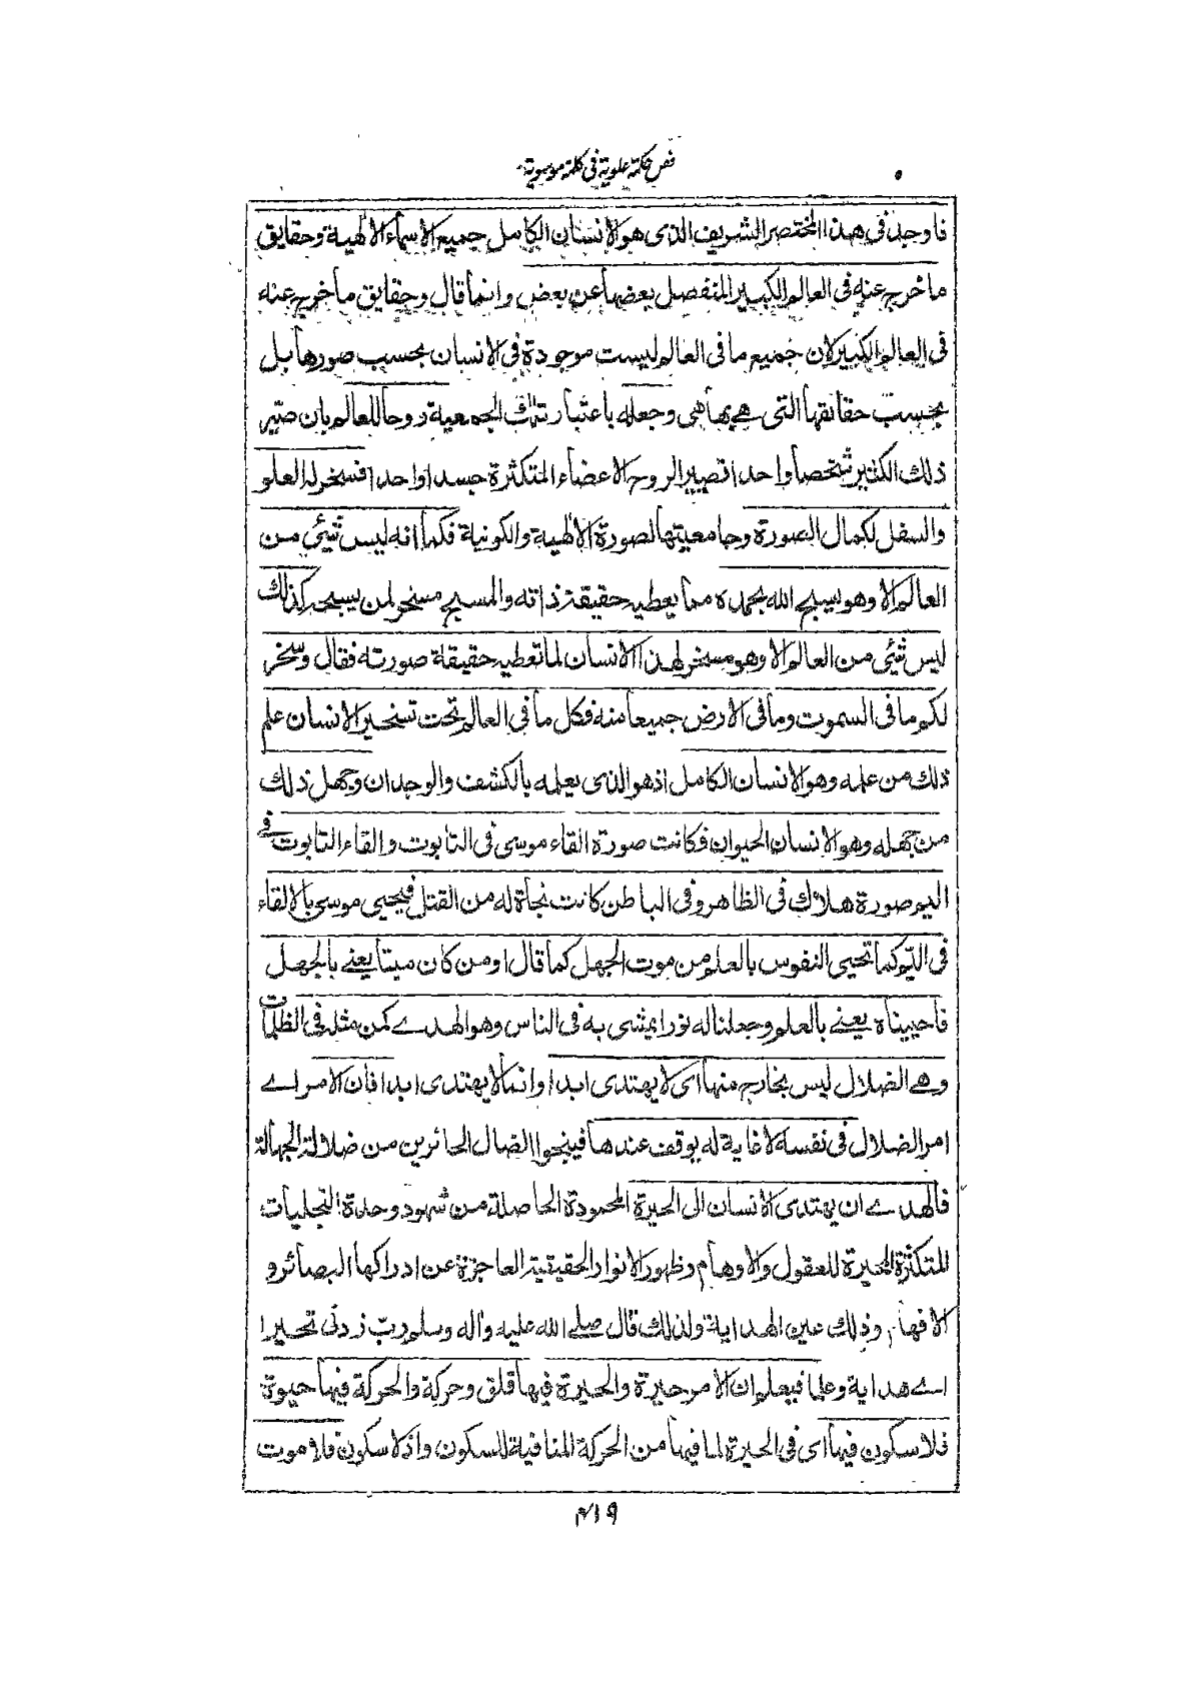 فص حكمة علوية فى كلمة موسوية
فاوجد فى هذا المختصر الشريف الذى هو الانسان الكامل جميع الاسماء الالهية وحقايق
ما خرج عنه فى العالم الكبير المنفصل بعضها عن بعض وانما قال وحقايق ما خرج عنه
فى العالم الكبير لان جميع ما فى العالم ليست موجودة فى الانسان بحسب صورها بل
بحسب حقائقها التى هى بها هى وجعله باعتبار تلك الجمعية روحا للعالم بان صيّر
ذلك الكثير شخصا واحدا تصيير الروح الاعضاء المتكثرة جسدا واحدا فسخر له العلو
والسفل لكمال الصورة وجامعيتها لصورة الالهية والكونية فكما انه ليس شئ من
العالم الا وهو يسبح الله بحمده مما يعطيه حقيقة ذاته والمسبح مسخر لمن يسبحه كذلك
ليس شئ من العالم الا وهو مسخر لهذا الانسان لما تعطيه حقيقة صورته فقال وسخر
لكم ما فى السموت وما فى الارض جميعا منه فكل ما فى العالم تحت تسخير الانسان علم
ذلك من علمه وهو الانسان الكامل اذ هو الذى يعلمه بالكشف والوجدان وجهل ذلك
من جهله وهو الانسان الحيوان فكانت صورة القاء موسى فى التابوت والقاء التابوت فے
اليم صورة هلاك فى الظاهر وفى الباطن كانت نجاة له من القتل فيحيى موسى بالالقاء
فى اليم كما تحيى النفوس بالعلم من موت الجهل كما قال او من كان ميتا يعنے بالجهل
فاحييناه يعنے بالعلم وجعلنا له نورا يمشى به فى الناس وهو الهدے كمن مثله فى الظلمات
وهے الضلال ليس بخارج منها اى لا يهتدى ابدا وانما لا يهتدى ابدا فان الامر اے
امر الضلال فى نفسه لا غاية له يوقف عندها فينجوا الضال الحائرين من ضلالة الجهالة
فالهدے ان يهتدى الانسان الى الحيرة المحمودة الحاصلة من شهود وحدة التجليات
المتكثرة المحيرة للعقول والاوهام وظهور الانوار الحقيقية العاجزة عن ادراكها البصائر و
الافهام وذلك عين الهداية ولذلك قال صلے الله عليه واله وسلم ربّ زدنى تحيرا
اے هداية وعلما فيعلم ان الامر حيرة والحيرة فيها قلق وحركة والحركة فيها حيوة
فلا سكون فيها اى فى الحيرة لما فيها من الحركة المنافية للسكون واذ لا سكون فلا موت
۴۱۹